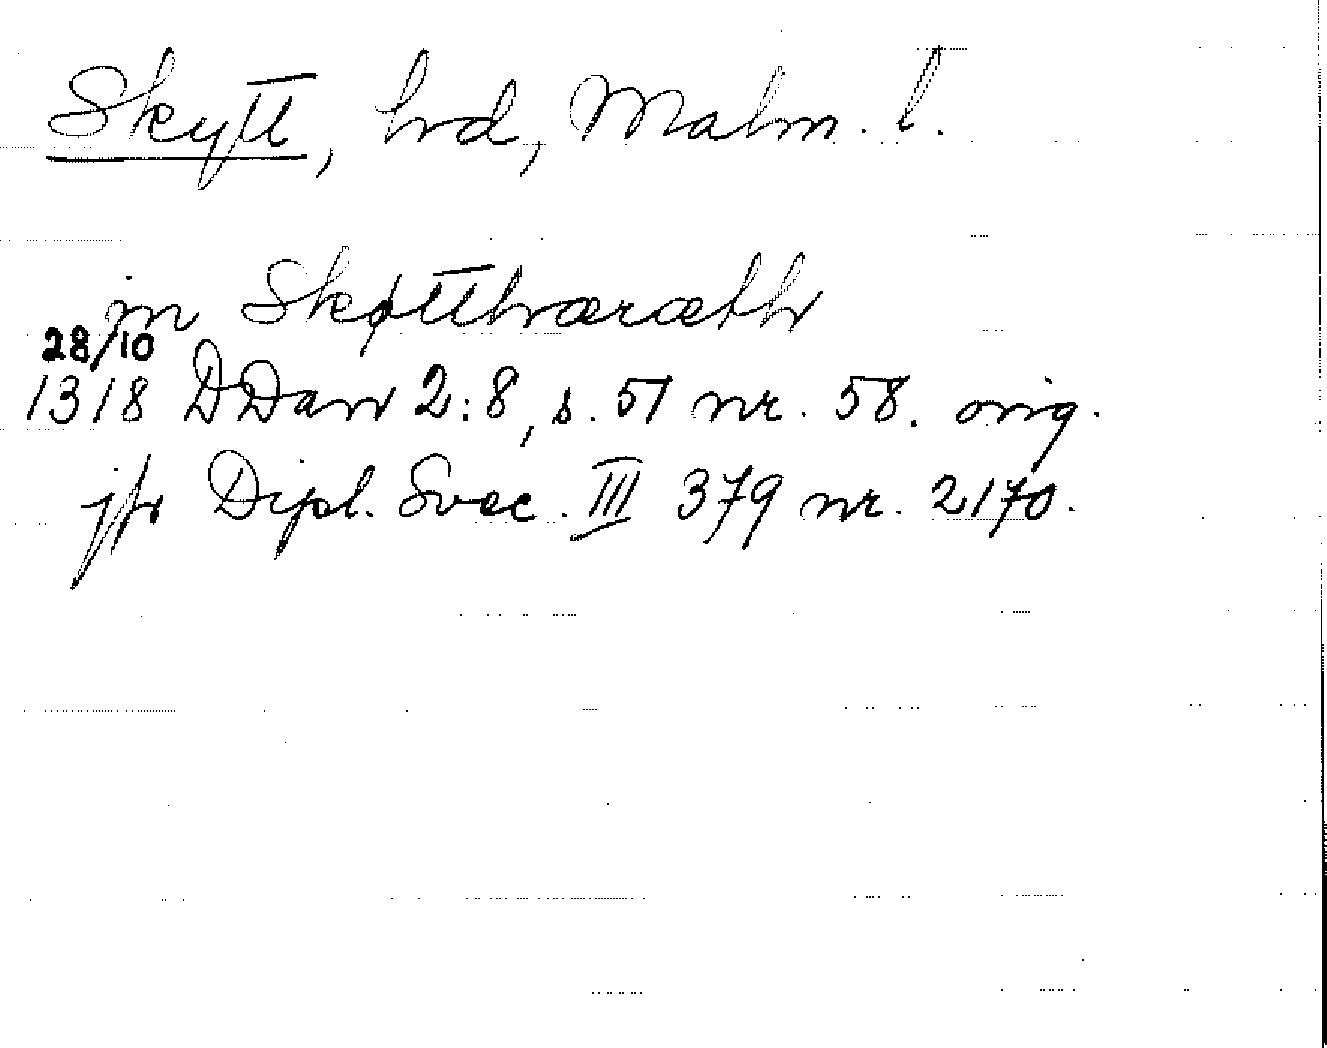 Skytt, hrd, Malm. l.
in Skøtthæræth
28/10
1318 DDan 2:8, s. 51 nr. 58. orig.
jfr Dipl. Svec. III 379 nr. 2170.